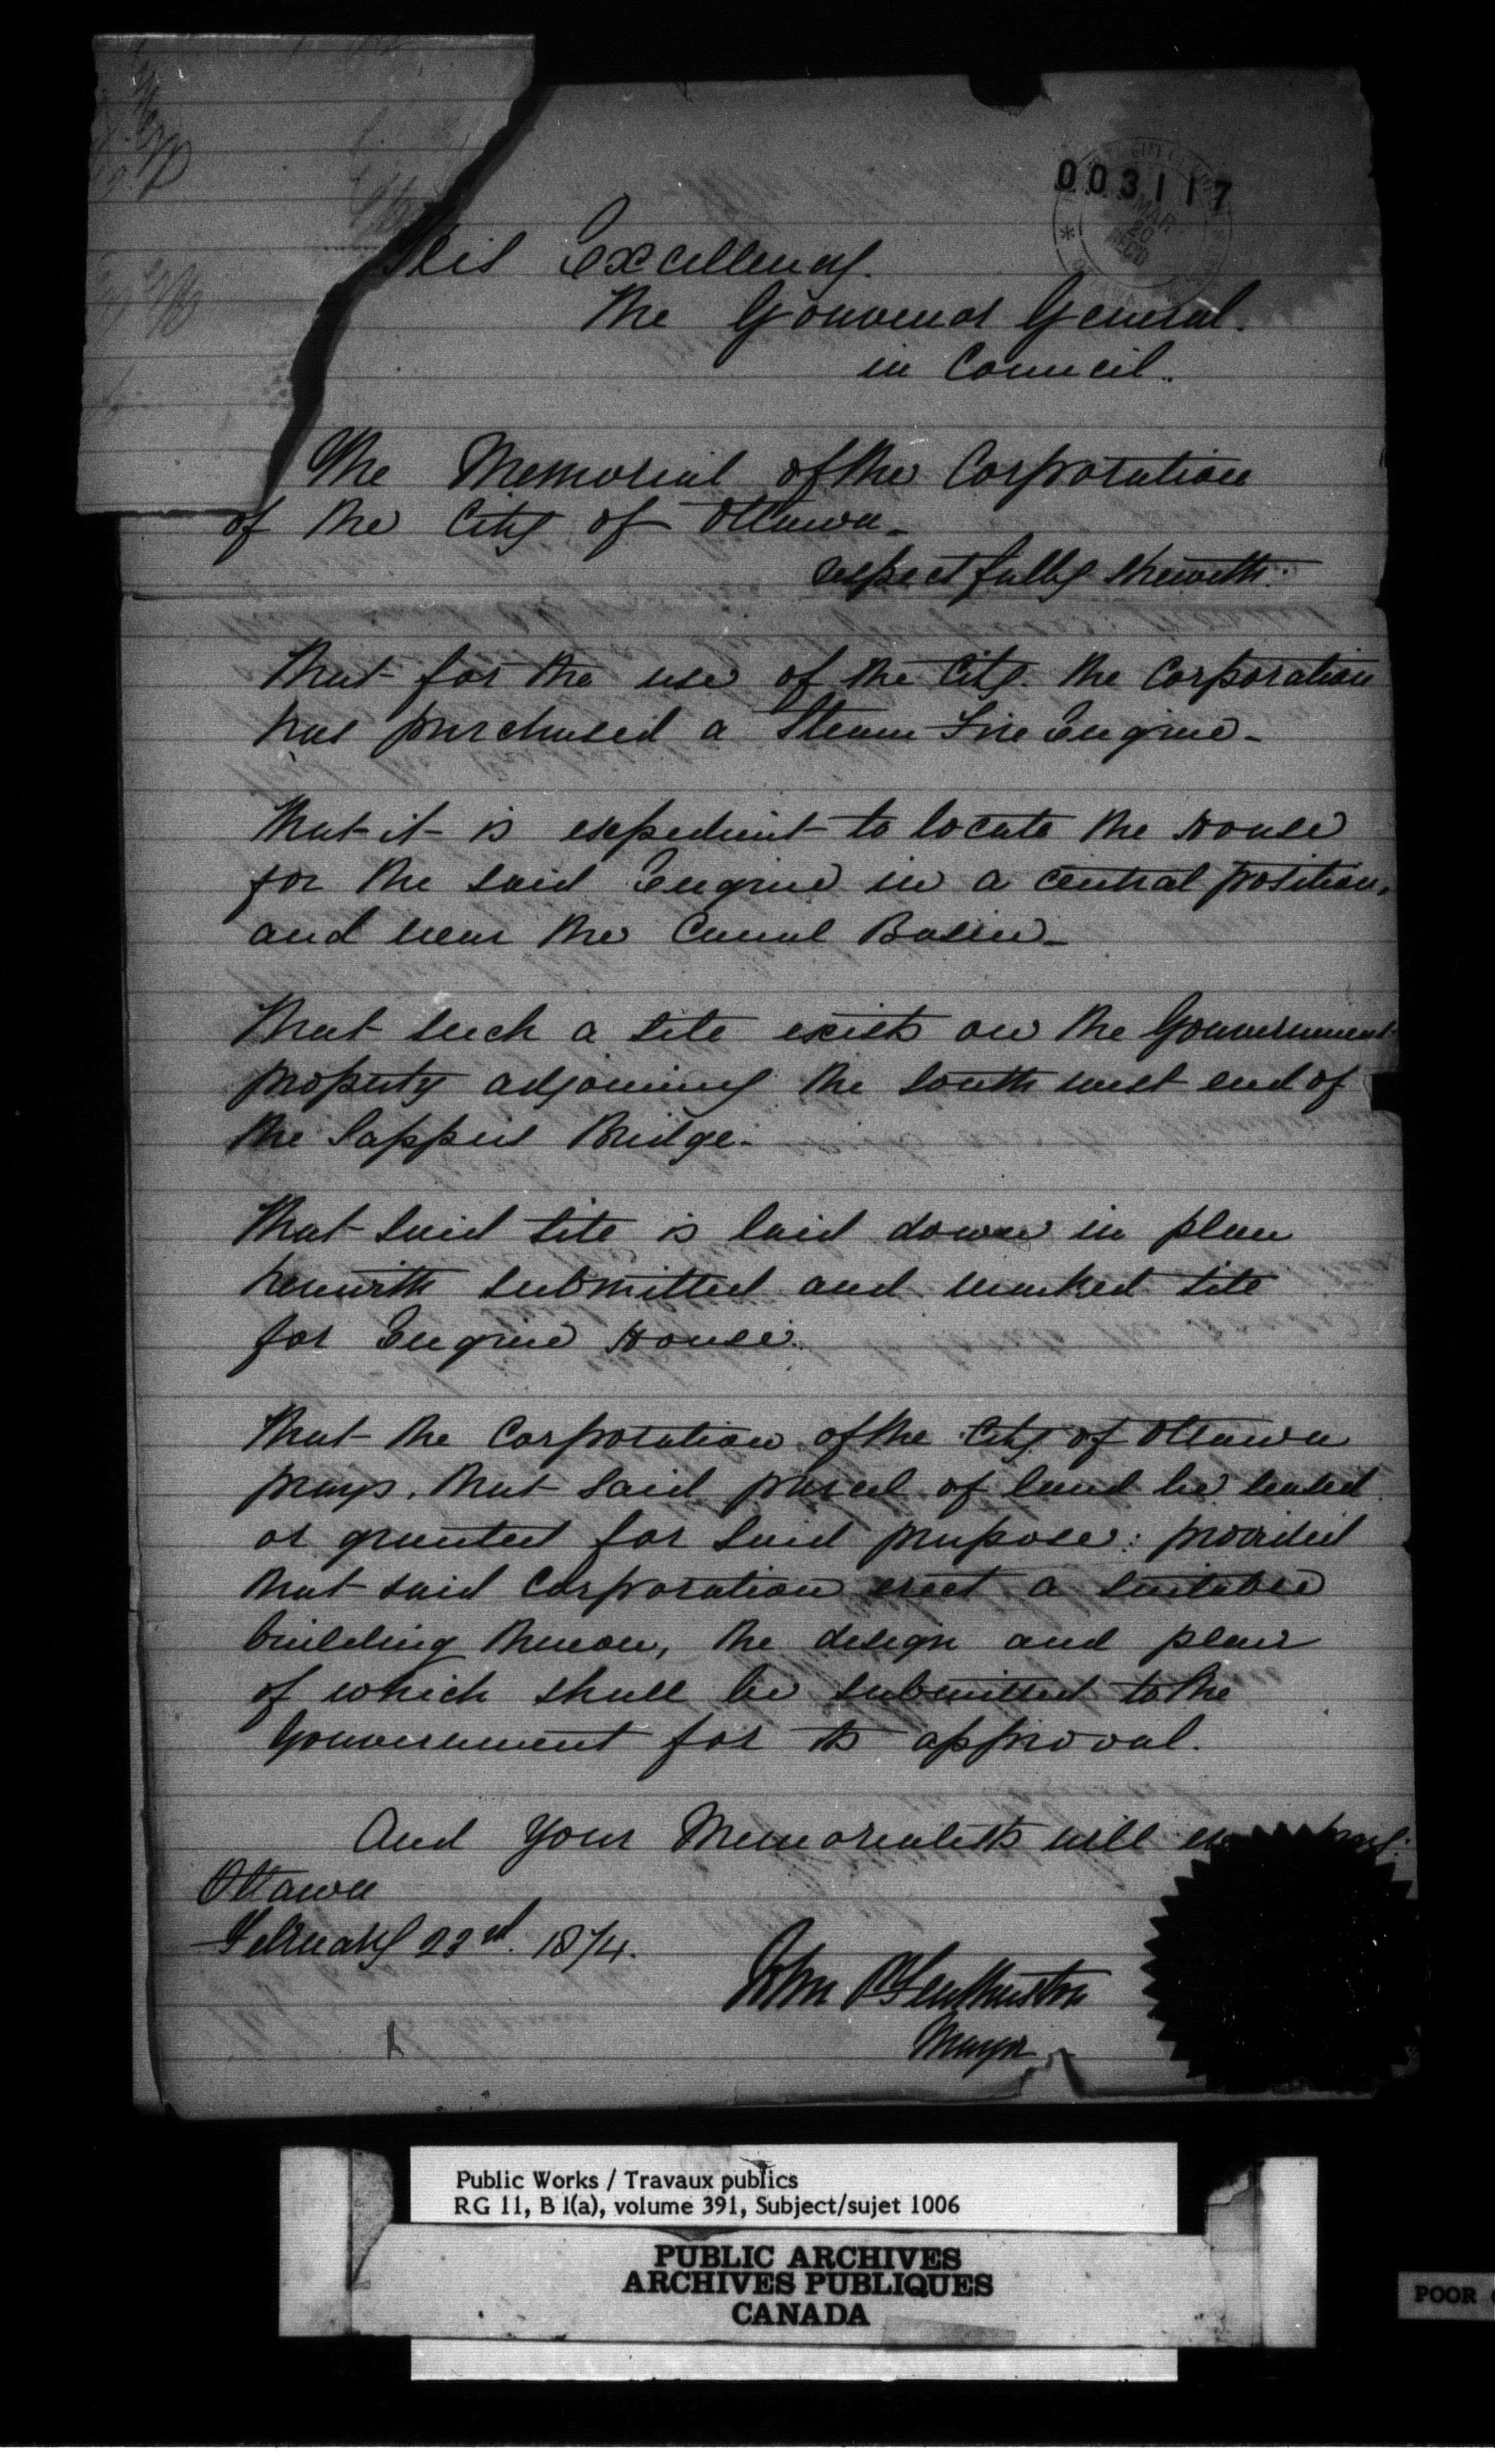 003117
MAR
20
REC'D
His Excellency.
The Gouvernor General.
in Council.
The Memorial of the Corporation
of the City of Ottawa_
respectfully sheweth:
That for the use of the City the Corporation
has purchased a Steam Fire Engine_
That it is expedient to locate the House
for the said Engine in a central position,
and near the Canal Basin_
That such a site exists on the Gouvernment
property adjoining the south west end of
the Sappers Bridge_
That said site is laid down in plan
herewith submitted and marked site
for Engine House.
That the Corporation of the City of Ottawa
prays, that said parcel of land be leased
or granted for said purpose: provided
that said Corporation erect a suitable
building thereon, the design and plan
of which shall be submitted to the
Gouvernment for its approval.
And your Memorialists will ever pray.
Ottawa
February 23rd. 1874.
John P Featherston
Mayor
Public Works / Travaux publics
RG 11, B 1(a), volume 391, Subject/sujet 1006
PUBLIC ARCHIVES
ARCHIVES PUBLIQUES
CANADA
POOR